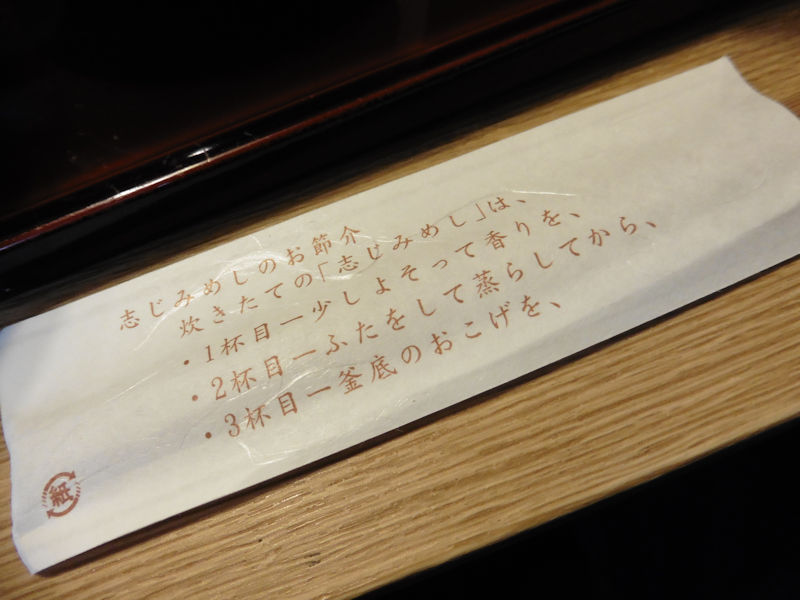 志じみめしのお節介
炊きたての「志じみめし」は、
・1杯目ー少しよそって香りを、
・2杯目ーふたをして蒸らしてから、
・3杯目ー釜底のおこげを、